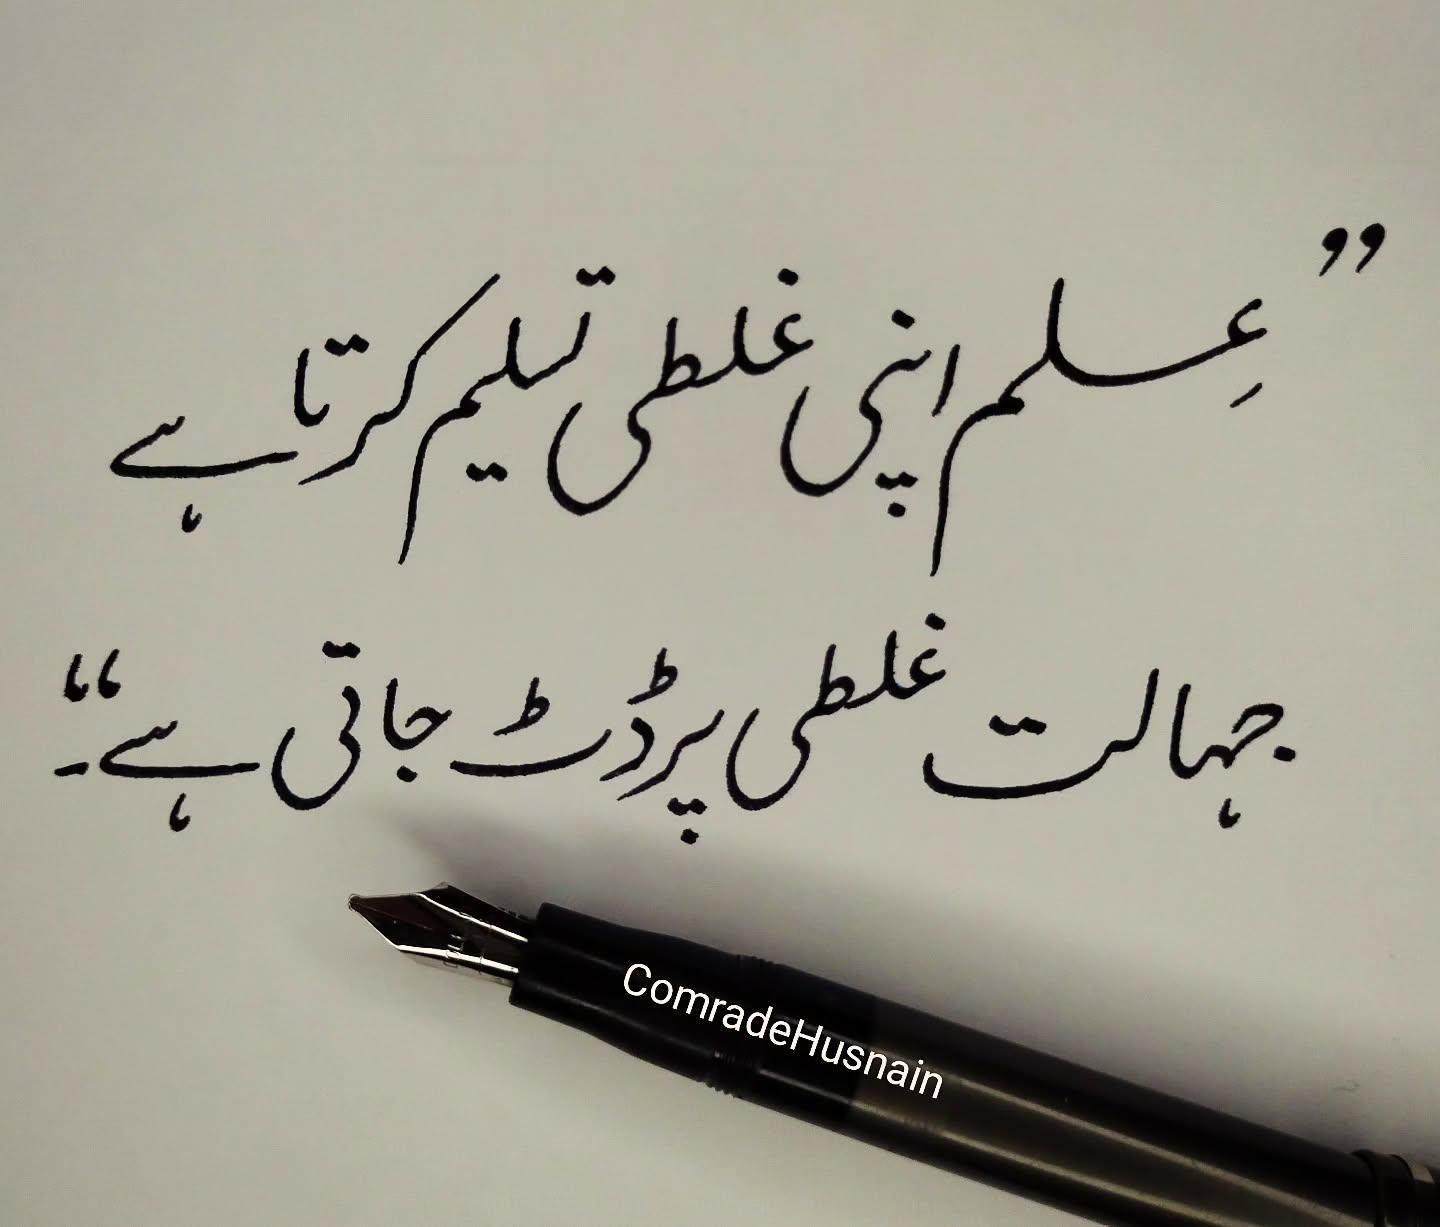 ”عِلم اپنی غلطی تسلیم کرتا ہے
جہالت غلطی پر ڈٹ جاتی ہے۔“
ComradeHusnain